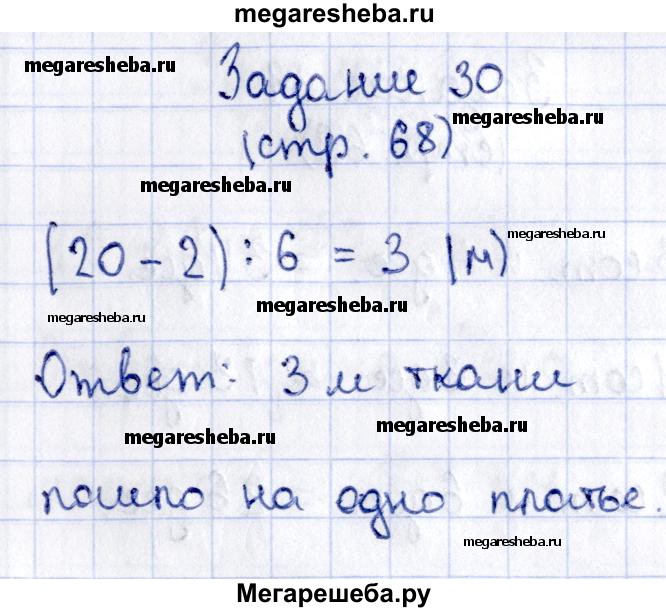 megaresheba.ru
megaresheba.ru
Задание 30
megaresheba.ru
(стр. 68)
megaresheba.ru
(20 - 2) : 6 = 3 (м)
megaresheba.ru
megaresheba.ru
megaresheba.ru
Ответ: 3 м ткани
megaresheba.ru
megaresheba.ru
пошло на одно платье.
megaresheba.ru
Мегарешеба.ру